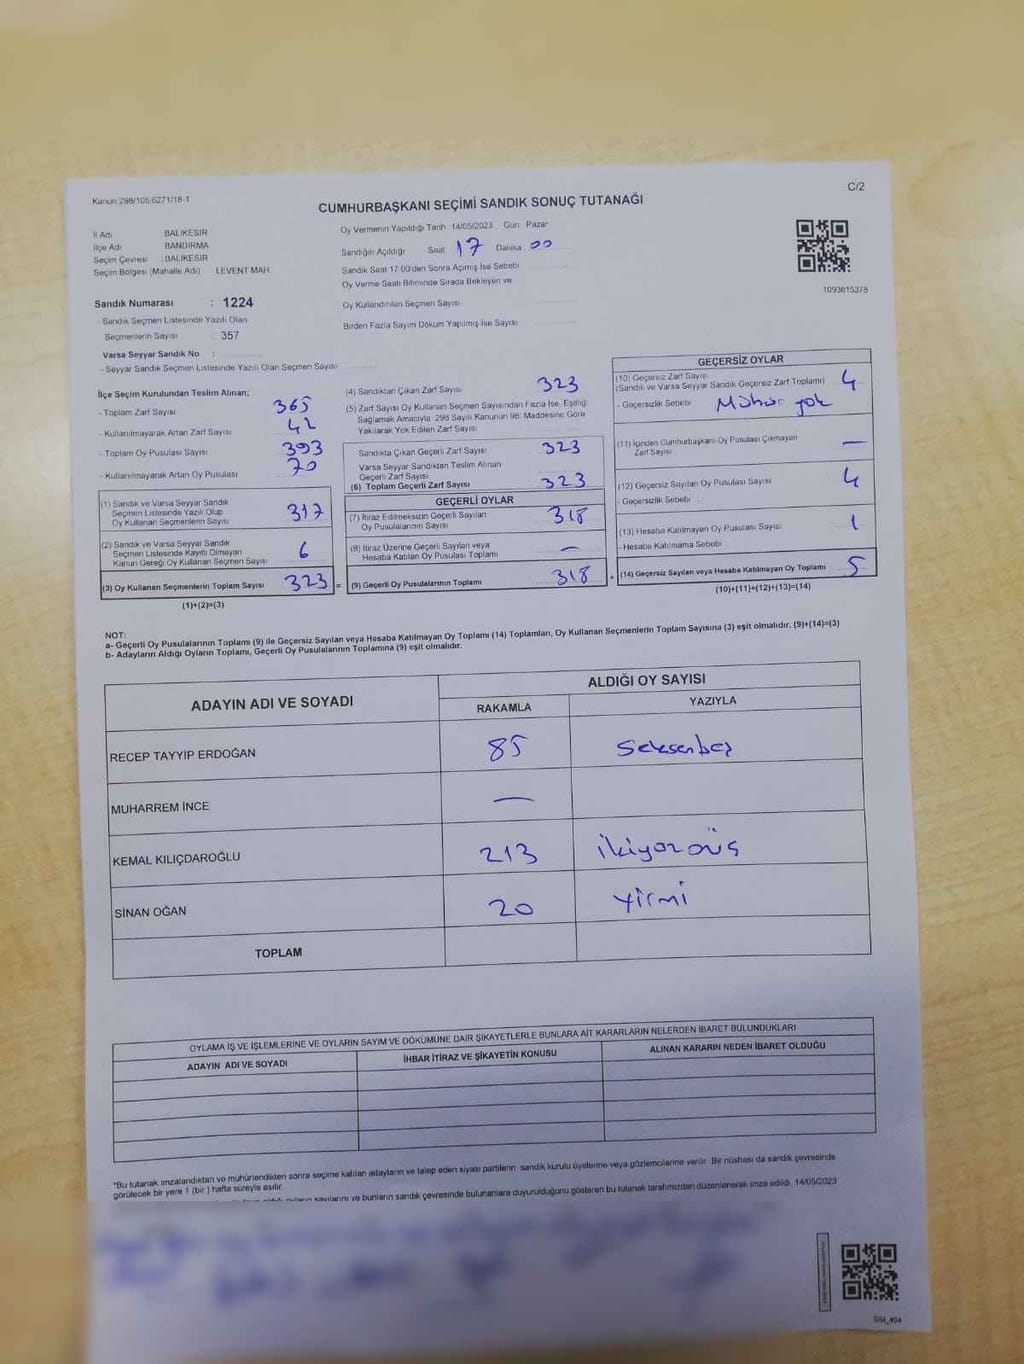 Kanun:298/105 6271/18-1
C/2
CUMHURBAŞKANI SEÇİMİ SANDIK SONUÇ TUTANAĞI
İl Adı BALIKESİR
İlçe Adı BANDIRMA
Seçim Çevresi : BALIKESİR
Seçim Bölgesi (Mahalle Adı) LEVENT MAH.
Sandık Numarası : 1224
- Sandık Seçmen Listesinde Yazılı Olan
Seçmenlerin Sayısı : 357
Varsa Seyyar Sandık No :
- Seyyar Sandık Seçmen Listesinde Yazılı Olan Seçmen Sayısı
Oy Vermenin Yapıldığı Tarih 14/05/2023 Gün: Pazar
Sandığın Açıldığı Saat 17 Dakika 00
Sandık Saat 17.00'den Sonra Açımış İse Sebebi
Oy Verme Saati Bitiminde Sırada Bekleyen ve
Oy Kullandırılan Seçmen Sayısı
Birden Fazla Sayım Döküm Yapılmış İse Sayısı
1093615378
İlçe Seçim Kurulundan Teslim Alınan;
- Toplam Zarf Sayısı 365
- Kullanılmayarak Artan Zarf Sayısı 42
- Toplam Oy Pusulası Sayısı 393
- Kullanılmayarak Artan Oy Pusulası 70
(1) Sandık ve Varsa Seyyar Sandık
Seçmen Listesinde Yazılı Olup
Oy Kullanan Seçmenlerin Sayısı 317
(2) Sandık ve Varsa Seyyar Sandık
Seçmen Listesinde Kayıtlı Olmayan
Kanun Gereği Oy Kullanan Seçmen Sayısı 6
(3) Oy Kullanan Seçmenlerin Toplam Sayısı 323 =
(1)+(2)=(3)
(4) Sandıktan Çıkan Zarf Sayısı 323
(5) Zarf Sayısı Oy Kullanan Seçmen Sayısından Fazla İse, Eşitliği
Sağlamak Amacıyla, 298 Sayılı Kanunun 98. Maddesine Göre
Yakılarak Yok Edilen Zarf Sayısı
Sandıkta Çıkan Geçerli Zarf Sayısı 323
Varsa Seyyar Sandıktan Teslim Alınan
Geçerli Zarf Sayısı
(6) Toplam Geçerli Zarf Sayısı 323
GEÇERLİ OYLAR
(7) İtiraz Edilmeksizin Geçerli Sayılan
Oy Pusulalarının Sayısı 318
(8) İtiraz Üzerine Geçerli Sayılan veya
Hesaba Katılan Oy Pusulası Toplamı —
(9) Geçerli Oy Pusulalarının Toplamı 318 +
GEÇERSİZ OYLAR
(10) Geçersiz Zarf Sayısı
(Sandık ve Varsa Seyyar Sandık Geçersiz Zarf Toplamı) 4
- Geçersizlik Sebebi Mühür yok
(11) İçinden Cumhurbaşkanı Oy Pusulası Çıkmayan
Zarf Sayısı —
(12) Geçersiz Sayılan Oy Pusulası Sayısı 4
- Geçersizlik Sebebi :
(13) Hesaba Katılmayan Oy Pusulası Sayısı 1
- Hesaba Katılmama Sebebi
(14) Geçersiz Sayılan veya Hesaba Katılmayan Oy Toplamı 5
(10)+(11)+(12)+(13)=(14)
NOT:
a- Geçerli Oy Pusulalarının Toplamı (9) ile Geçersiz Sayılan veya Hesaba Katılmayan Oy Toplamı (14) Toplamları, Oy Kullanan Seçmenlerin Toplam Sayısına (3) eşit olmalıdır. (9)+(14)=(3)
b- Adayların Aldığı Oyların Toplamı, Geçerli Oy Pusulalarının Toplamına (9) eşit olmalıdır.
ADAYIN ADI VE SOYADI
ALDIĞI OY SAYISI
RAKAMLA YAZIYLA
RECEP TAYYİP ERDOĞAN 85 Seksenbeş
MUHARREM İNCE —
KEMAL KILIÇDAROĞLU 213 ikiyüzonüç
SİNAN OĞAN 20 Yirmi
TOPLAM
OYLAMA İŞ VE İŞLEMLERİNE VE OYLARIN SAYIM VE DÖKÜMÜNE DAİR ŞİKAYETLERLE BUNLARA AİT KARARLARIN NELERDEN İBARET BULUNDUKLARI
ADAYIN ADI VE SOYADI İHBAR İTİRAZ VE ŞİKAYETİN KONUSU ALINAN KARARIN NEDEN İBARET OLDUĞU
*Bu tutanak imzalandıktan ve mühürlendikten sonra seçime katılan adayların ve talep eden siyasi partilerin sandık kurulu üyelerine veya gözlemcilerine verilir. Bir nüshası da sandık çevresinde
görülecek bir yere 1 (bir) hafta süreyle asılır.
sayılarını ve bunların sandık çevresinde bulunanlara duyurulduğunu gösteren bu tutanak tarafımızdan düzenlenerek imza edildi. 14/05/2023